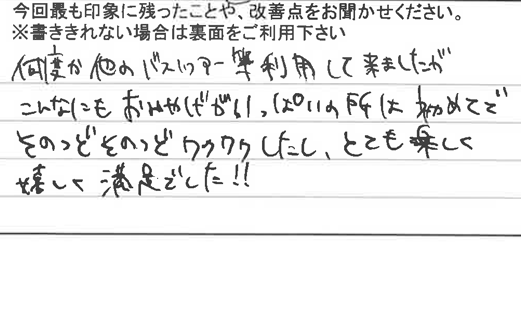 今回最も印象に残ったことや、改善点をお聞かせください。
※書ききれない場合は裏面をご利用下さい
何度か他のバスツアー等利用して来ましたが
こんなにもおみやげがいっぱいの所は初めてで
そのつどそのつどワクワクしたし、とても楽しく
嬉しく満足でした!!